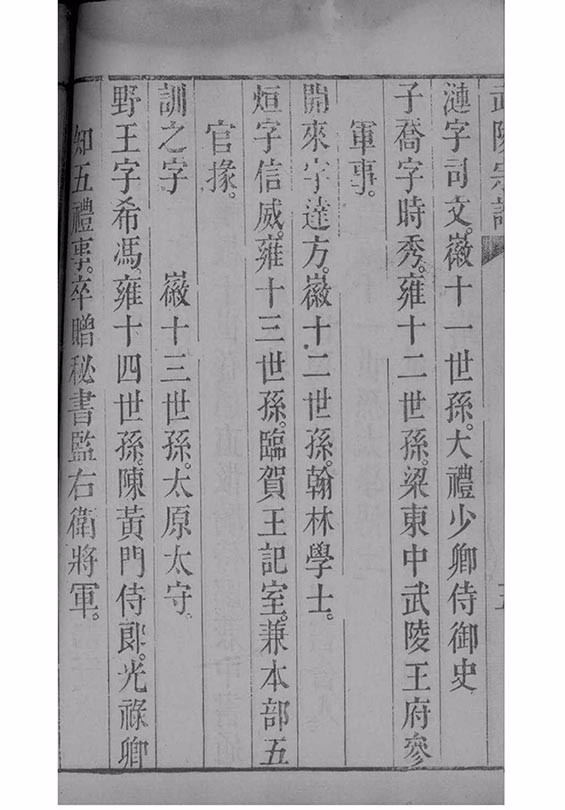 武陵宗譜
漣字司文。徽十一世孫。大禮少卿侍御史
子喬字時秀。雍十二世孫。梁東中武陵王府參
軍事。
開來字達方。徽十二世孫。翰林學士。
烜字信威。雍十三世孫。臨賀王記室。兼本部五
官掾。
訓之字　徽十三世孫。太原太守
野王字希馮。雍十四世孫。陳黃門侍郎。光祿卿
知五禮事。卒贈秘書監右衛將軍。